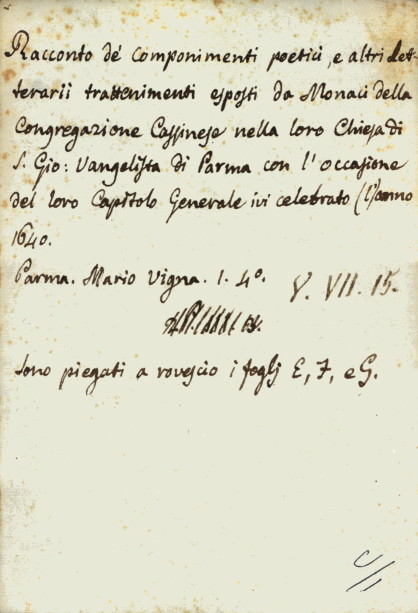 Racconto de' componimenti poetici, e altri Let-
terarii trattenimenti esposti da Monaci della
Congregazione Cassinese nella loro Chiesa di
S. Gio: Vangelista di Parma con l'occasione
del loro Capitolo Generale ivi celebrato (l'anno
1640.
Parma. Mario Vigna. 1. 4º.
Y. VII. 15.
sono piegati a rovescio i foglj E, F, e G.